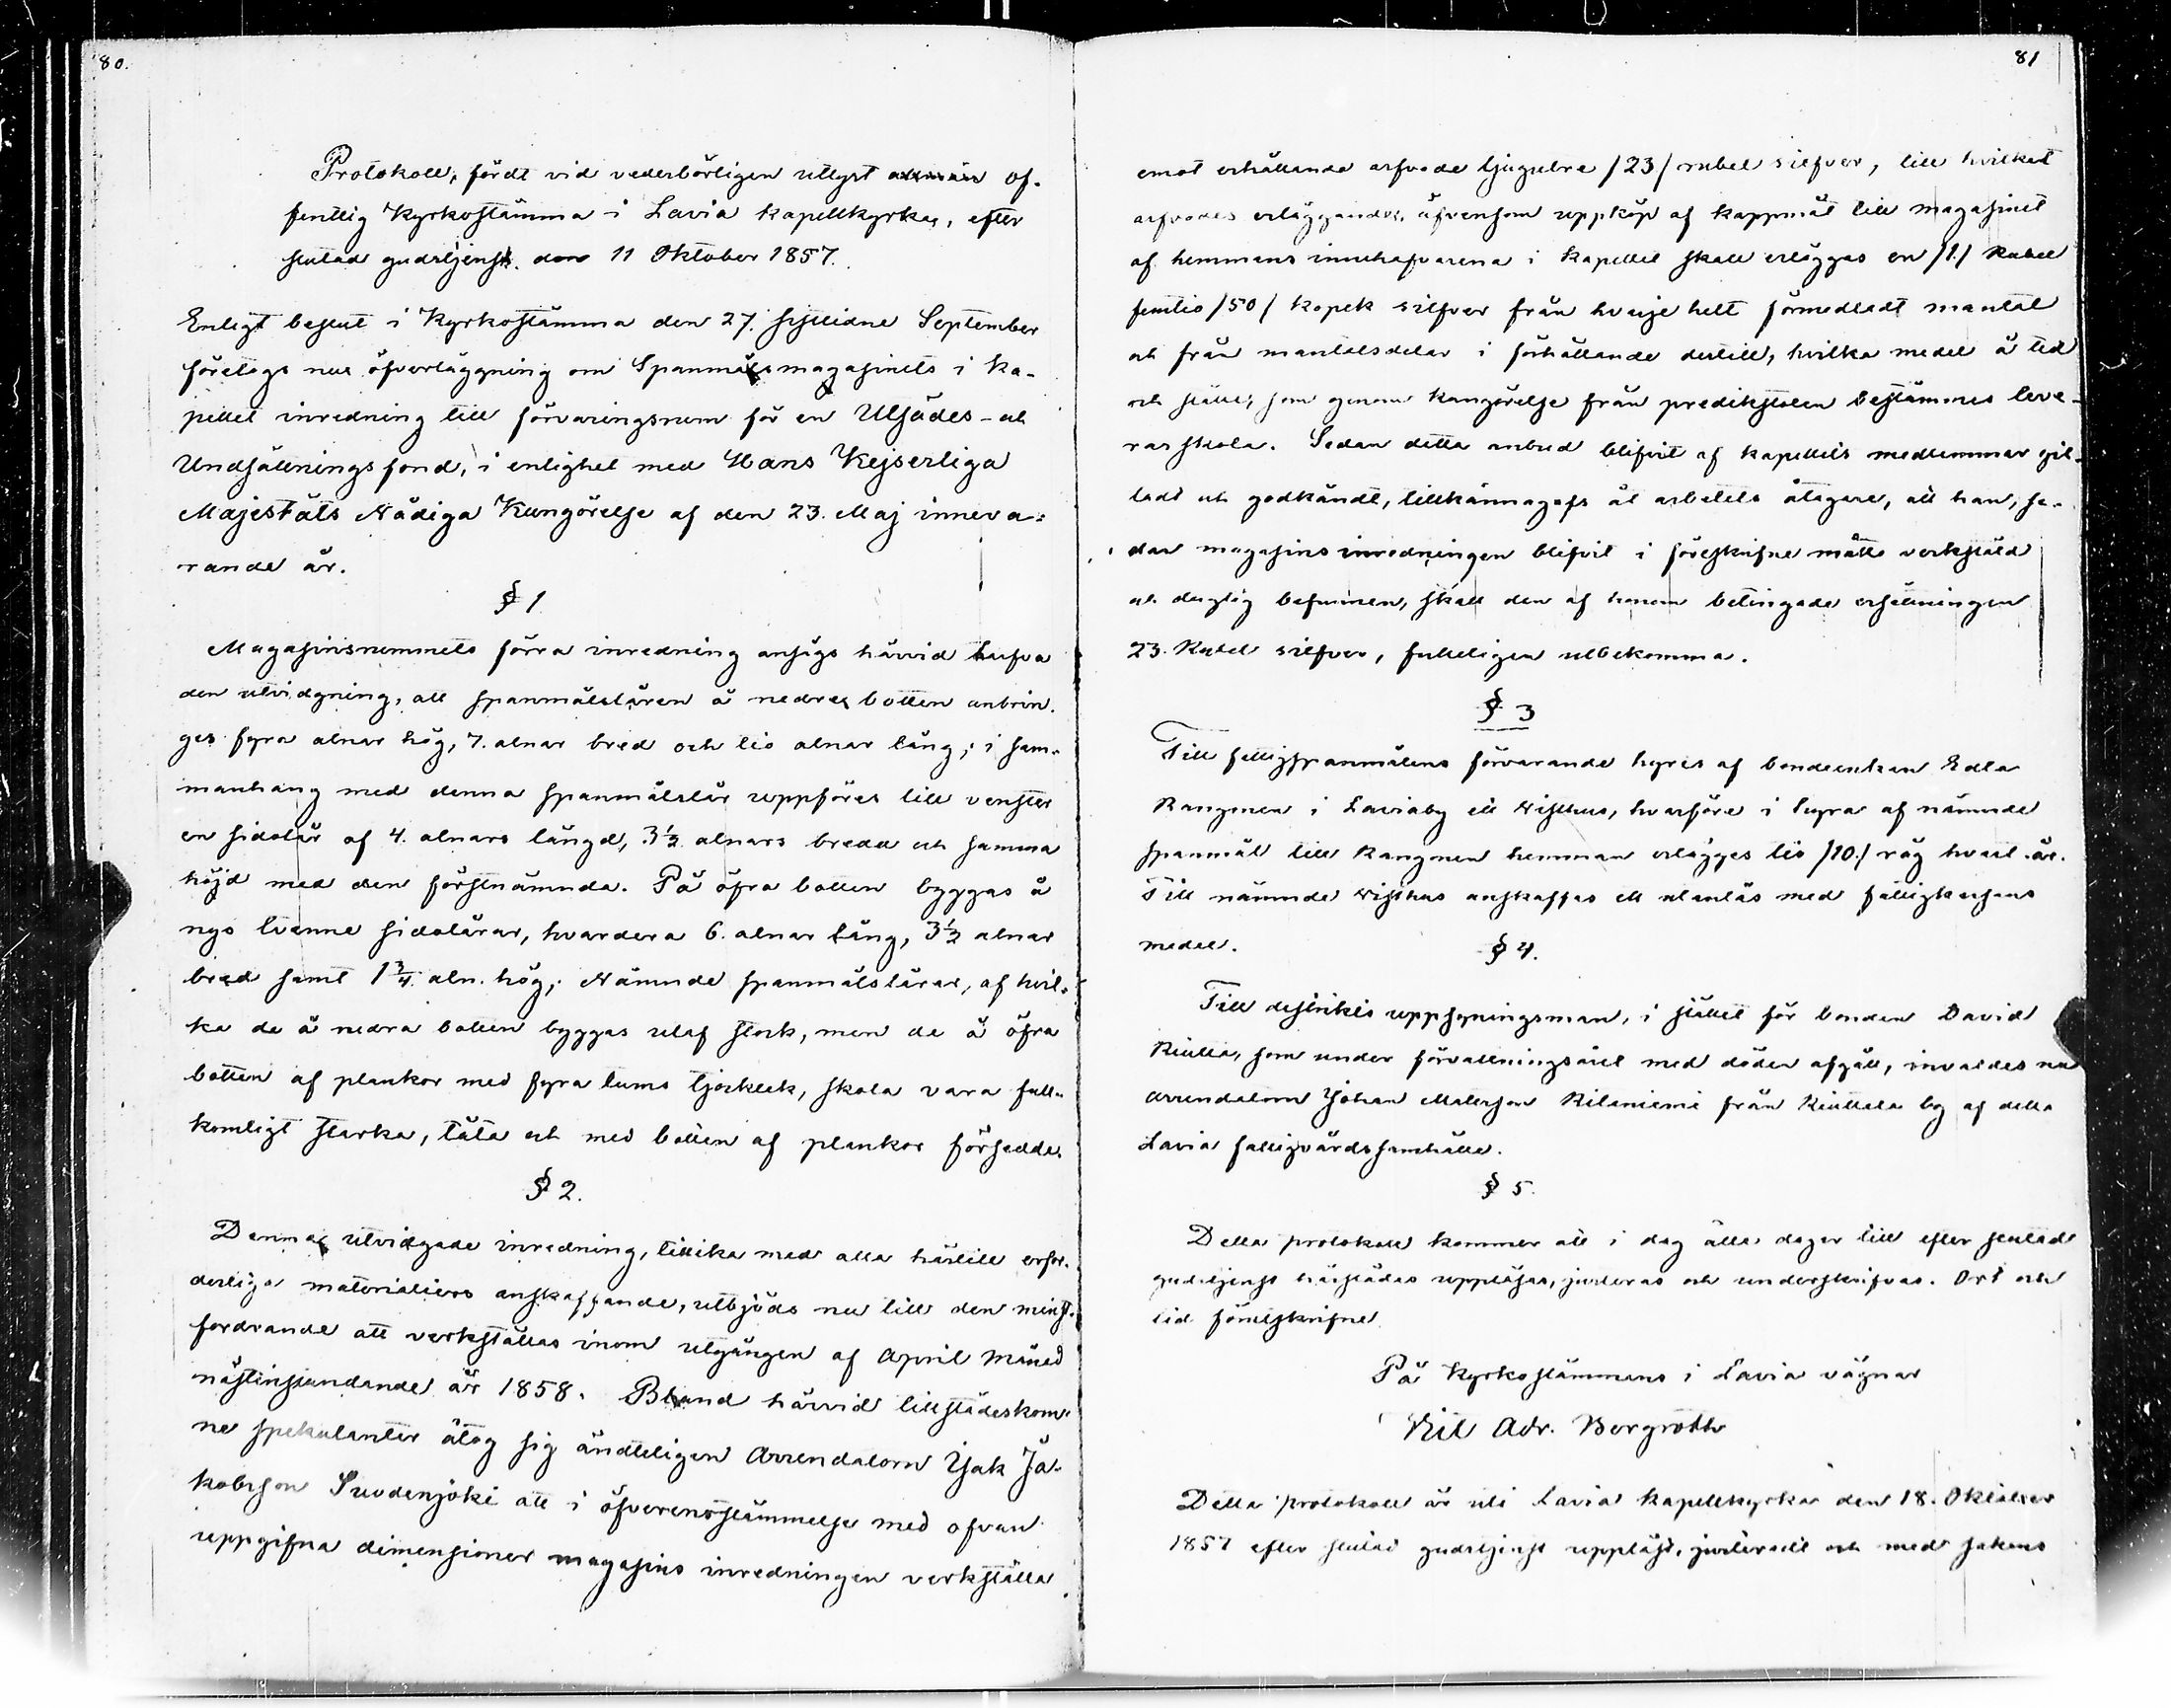 80.
Protokoll, fördt vid vederbörligen utlyst allmän of-
fentlig Kyrkostämma i Lavia kapellkyrka, efter
slutad gudstjenst den 11 Oktober 1857.
Enligt beslut i Kyrkostämma den 27. sistlidne September
företogs nu öfverläggning om Spanmåls magasinets i Ka-
pellet inredning till förvaringsrum för en Utsädes- och
Undsättningsfond, i enlighet med Hans Kejserliga
Majestäts Nådiga Kungörelse af den 23. Maj inneva-
rande år.
§ 1
Magasinsrummets förra inredning ansågs härvid hafva
den utvidgning, att spanmålslåren å nedre botten anbrin-
ges fyra alnar hög, 7. alnar bred och tio alnar lång; i sam-
manhang med denna spanmålslår uppföres till venster
en sidolår af 4. alnars längd, 3½ alnars bredd och samma
höjd med den förstnämnda. På öfra botten byggas å
nyo tvenne sidolårar, hvardera 6. alnar lång, 3½ alnar
bred samt 1¾ aln. hög; Nämnde spanmålslårar, af hvil-
ka de å nedra botten byggas utaf stock, men de å öfra
botten af plankor med fyra tums tjocklek, skola vara full-
komligt starka, täta och med botten af plankor försedde.
§ 2.
Denna utvidgade inredning, tillika med alla härtill erfor-
derliga materialiers anskaffande, utbjöds nu till den minst-
fordrande att verkställas inom utgången af April månad
nästinstundande år 1858. Bland härvid tillstädeskom-
ne spekulanter åtog sig ändteligen Arrendatorn Isak Ja-
kobsson Suodenjoki att i öfverensstämmelse med ofvan
uppgifna dimensioner magasins inredningen verkställa
81
emot erhållande arfvode tjugutre /23/ rubel silfver, till hvilket
arfvodes erläggande, äfvensom uppköp af kappmål till magasinet
af hemmans innehafvarena i kapellet skall erläggas en /1/ Rubel
femtio /50/ kopek silfver från hvarje helt förmedladt mantal
och från mantalsdelar i förhållande dertill, hvilka medel å tid
och ställe, som genom kungörelse från predikstolen bestämmes leve-
ras skola. Sedan detta anbud blifvit af kapellets medlemmar gil-
ladt och godkändt, tillkännagafs åt arbetets åtagare, att han, se-
dan magasins inredningen blifvit i föreskrifne mått verkstäld
och duglig befunnen, skall den af honom betingade ersättningen
23. Rubel silfver, fulleligen utbekomma.
§ 3
Till fattigspanmålens förvarande hyres af bondeenkan Edla
Kangmen i Laviaby ett Visthus, hvarföre i hyra af nämnde
spanmål till Kangmen hemman erlägges tio /10./ råg hvart år.
Till nämnde Visthus anskaffas ett utanlås med fattigkassans
medel.
§ 4.
Till distrikts uppsyningsman, i stället för bonden David
Kiulla, som under förvaltningsåret med döden afgått, invaldes nu
Arrendatorn Johan Matsson Kilaniemi från Kiullala by af detta
Lavia fattigvårdssamhälle.
§ 5.
Detta protokoll kommer att i dag åtta dagar till efter slutad
gudstjenst härstädes uppläsas, justeras och underskrifvas. Ort och
tid förutskrifne.
På Kyrkostämmans i Lavia vägnar
Adr. Bergroth
Detta protokoll är uti Lavia Kapellkyrka den 18. Oktober
1857 efter slutad gudstjenst uppläst, justeradt och med sakens